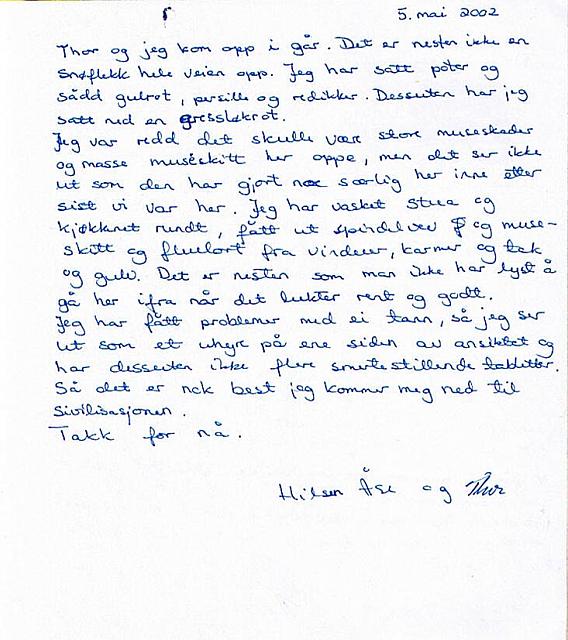 5. mai 2002
Thor og jeg kom opp i går. Det er nesten ikke en
snøflekk hele veien opp. Jeg har satt poter og
sådd gulrot, persille og redikker. Dessuten har jeg
satt ned en gressløkrot.
Jeg var redd det skulle være store museskader
og masse museskitt her oppe, men det ser ikke
ut som den har gjort noe særlig her inne etter
sist vi var her. Jeg har vasket stua og
kjøkkenet rundt, fått ut spindelvev og muse-
skitt og fluelort fra vinduer, karmer og tak
og gulv. Det er nesten som man ikke har lyst å
gå her ifra når det lukter rent og godt.
Jeg har fått problemer med ei tann, så jeg ser
ut som et uhyre på ene siden av ansiktet og
har dessuten ikke flere smertestillende tabletter.
Så det er nok best jeg kommer meg ned til
sivilisasjonen.
Takk for nå.
Hilsen Åse og Thor